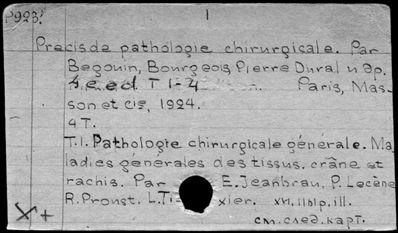 P923.
1
Precis de pathologie chirurgicale. Par
Begouin, Bourgeois, Pierre Duval и др.
4e ed T 1-4 Paris, Mas-
son et cie, 1924.
4 T.
T.I. Pathologie chirurgicale générale. Ma
ladies générales des tissus. crâne et
rachis. Par E. Jeanbrau, P. Lecène
R. Proust. L. Ti xier. XVI, 1161p, ill.
X+
см. след. карт.